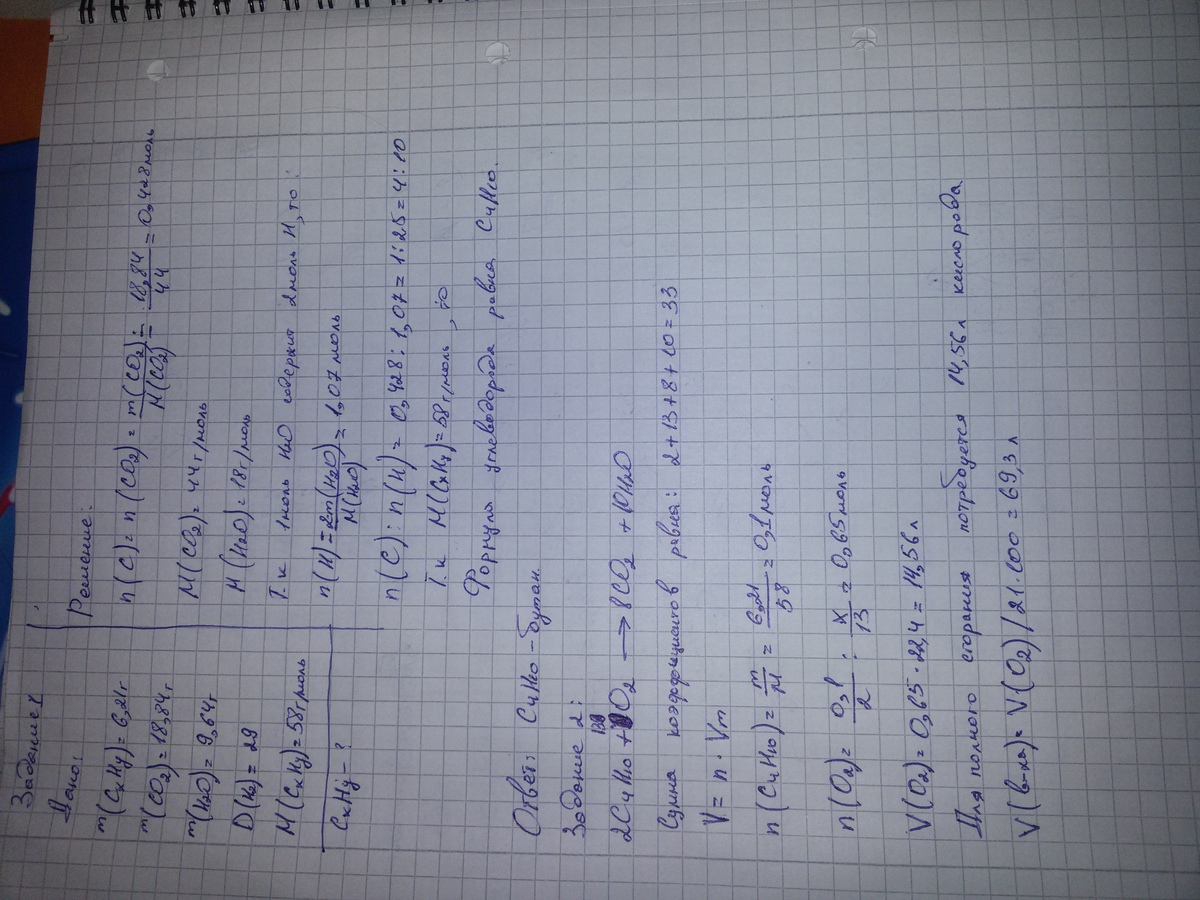 Задание 1
Дано:
m(CxHy)=6,21г
m(CO2)=18,84г
m(H2O)=9,64г
D(H2)=29
M(CxHy)=58г/моль
CxHy - ?
Решение:
n(C)=n(CO2)= m(CO2)/M(CO2) = 18,84/44 = 0,428моль
M(CO2)=44г/моль
M(H2O)=18г/моль
Т.к 1моль H2O содержит 2моль H, то:
n(H)=2m(H2O)/M(H2O) = 1,07моль
n(C):n(H)=0,428:1,07=1:25=4:10
Т.к M(CxHy)=58г/моль, то
Формула углеводорода равна C4H10.
Ответ: C4H10 - бутан.
Задание 2:
2C4H10 + 13O2 → 8CO2 + 10H2O
Сумма коэффициентов равна: 2+13+8+10=33
V = n · Vm
n(C4H10)= m/M = 6,21/58 = 0,1моль
n(O2)= 0,1/2 : x/13 = 0,65моль
V(O2)=0,65·22,4=14,56л
Для полного сгорания потребуется 14,56л кислорода
V(в-ха)=V(O2)/21·100=69,3л